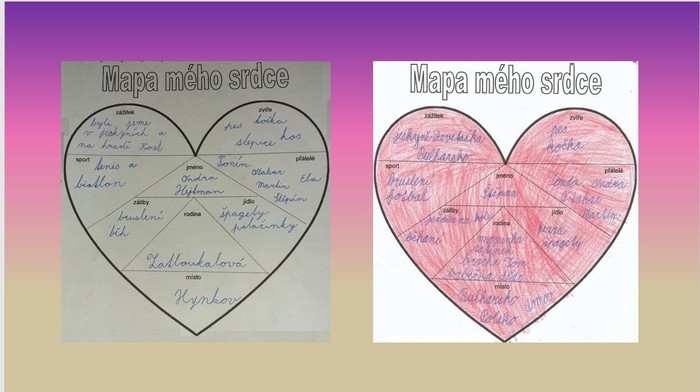 Mapa mého srdce
zážitek
byli jsme
v jeskyních a
na hradě
zvíře
pes kočka
slepice kos
sport
tenis a
biatlon
jméno
Ondra
Hejtman
přátelé
Toník
Otakar
Martin Ela
Štěpán
záliby
bruslení
běh
rodina
Zatloukalová
jídlo
špagety
palačinky
místo
Hynkov
Mapa mého srdce
zážitek
jeskyně
Bulharsko
zvíře
pes
kočka
sport
bruslení
fotbal
jméno
Štěpán
přátelé
Tonda Ondra
Otakar
Martin
záliby
kolo
běhání
rodina
maminka
tatínek
brácha Tom
babička děda
jídlo
pizza
špagety
místo
Bulharsko
Polsko